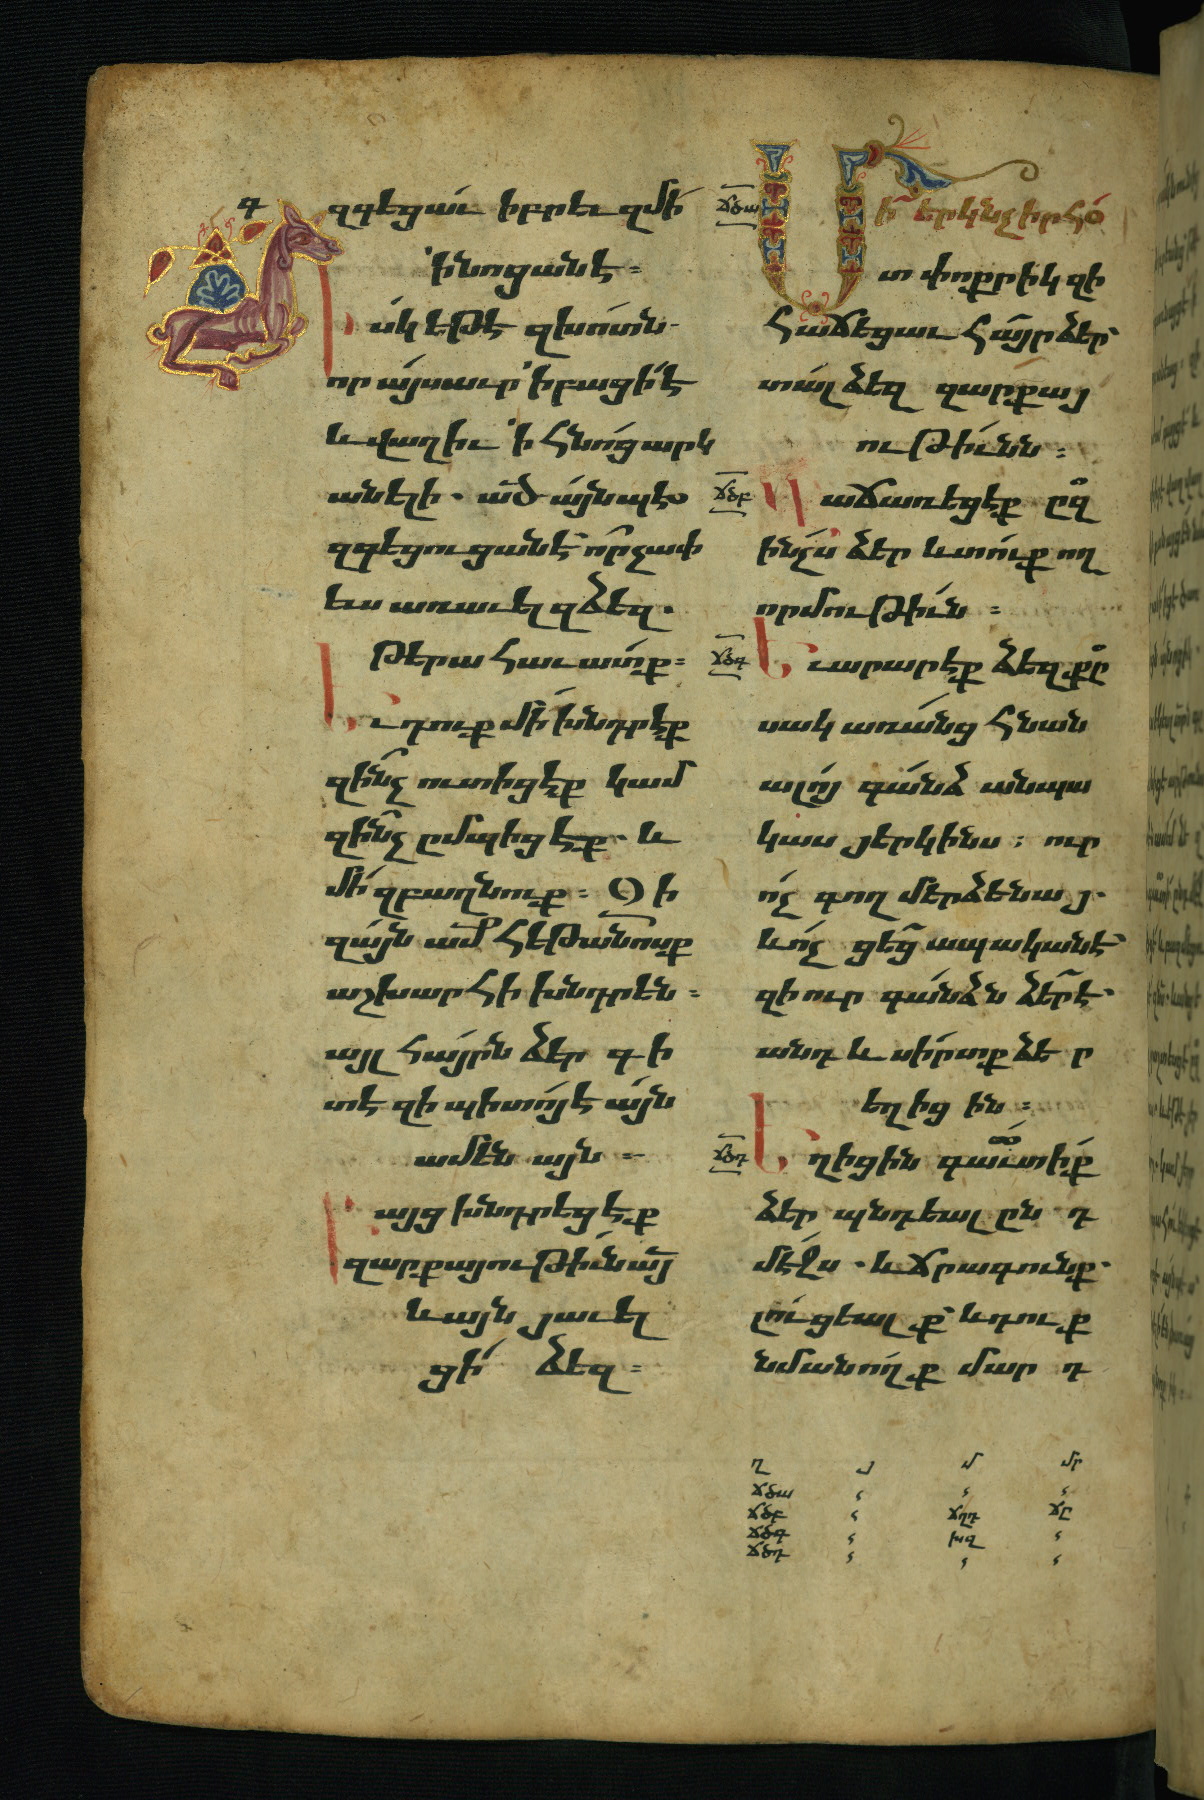 գ
զգեցաւ իբրեւ զմի
ինոցանէ ։
իսկ եթէ զխոտն ․
որ այսաւր ի բացի է
և վաղիւ ի հնոց արկ
անելի ․ ած այնպէս
զգեցուցանէ որչափ
ևս առաւել զձեզ ․
թերահաւատք ։
Եւ դուք մի խնդրէք
զինչ ուտիցէք կամ
զինչ ըմպիցէք ․ և
մի զբաղնուք ։ Զի
զայն ամ հեթանոսք
աշխարհի խնդրեն ։
այլ հայրն ձեր գի
տէ զի պիտոյ է այն
ամեն այն ։
Բայց խնդրեցէք
զարքայութիւն այ
և այն յաւել
ցի ձեզ ։
ճծա
Մի երկնչիր հօ
տ փոքրիկ զի
հաճեցաւ հայր ձեր
տալ ձեզ զարքայ
ութիւնն ։
ճծբ
Վաճառեցէք զը
ինչս ձեր և տուք ող
որմութիւն ։
ճծգ
Եւ արարէք ձեզ քը
սակ առանց հնան
ալոյ գանձ անպա
կաս յերկինս ։ ուր
ոչ գող մերձենայ ․
և ոչ ցեց ապականէ
զի ուր գանձն ձեր է
անդ և սիրտք ձեր
եղիցին ։
ճծդ
Եղիցին գաւտիք
ձեր պնդեալ ընդ
մէջս ․ և ճրագունք ․
լուցեալք և դուք
նմանողք մարդ
ղ յ մ մր
ճծա
ճծբ ճղդ ճը
ճծգ խզ
ճծդ